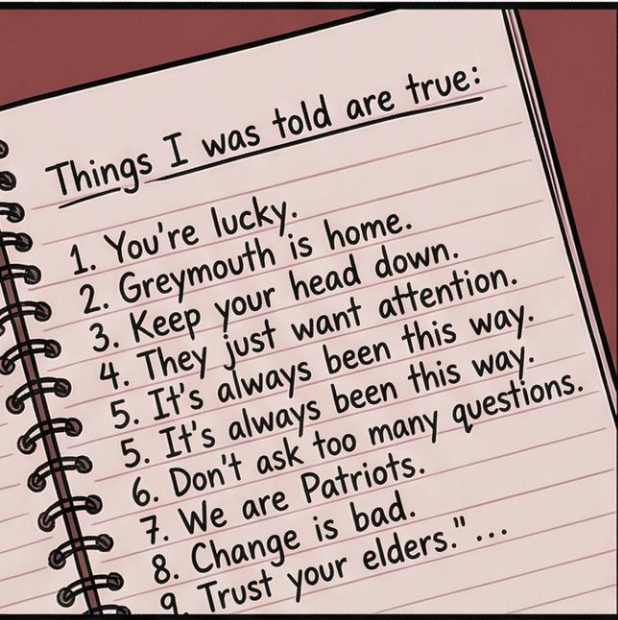 Things I was told are true:
1. You're lucky.
2. Greymouth is home.
3. Keep your head down.
4. They just want attention.
5. It's always been this way.
5. It's always been this way.
6. Don't ask too many questions.
7. We are Patriots.
8. Change is bad.
9. Trust your elders."...